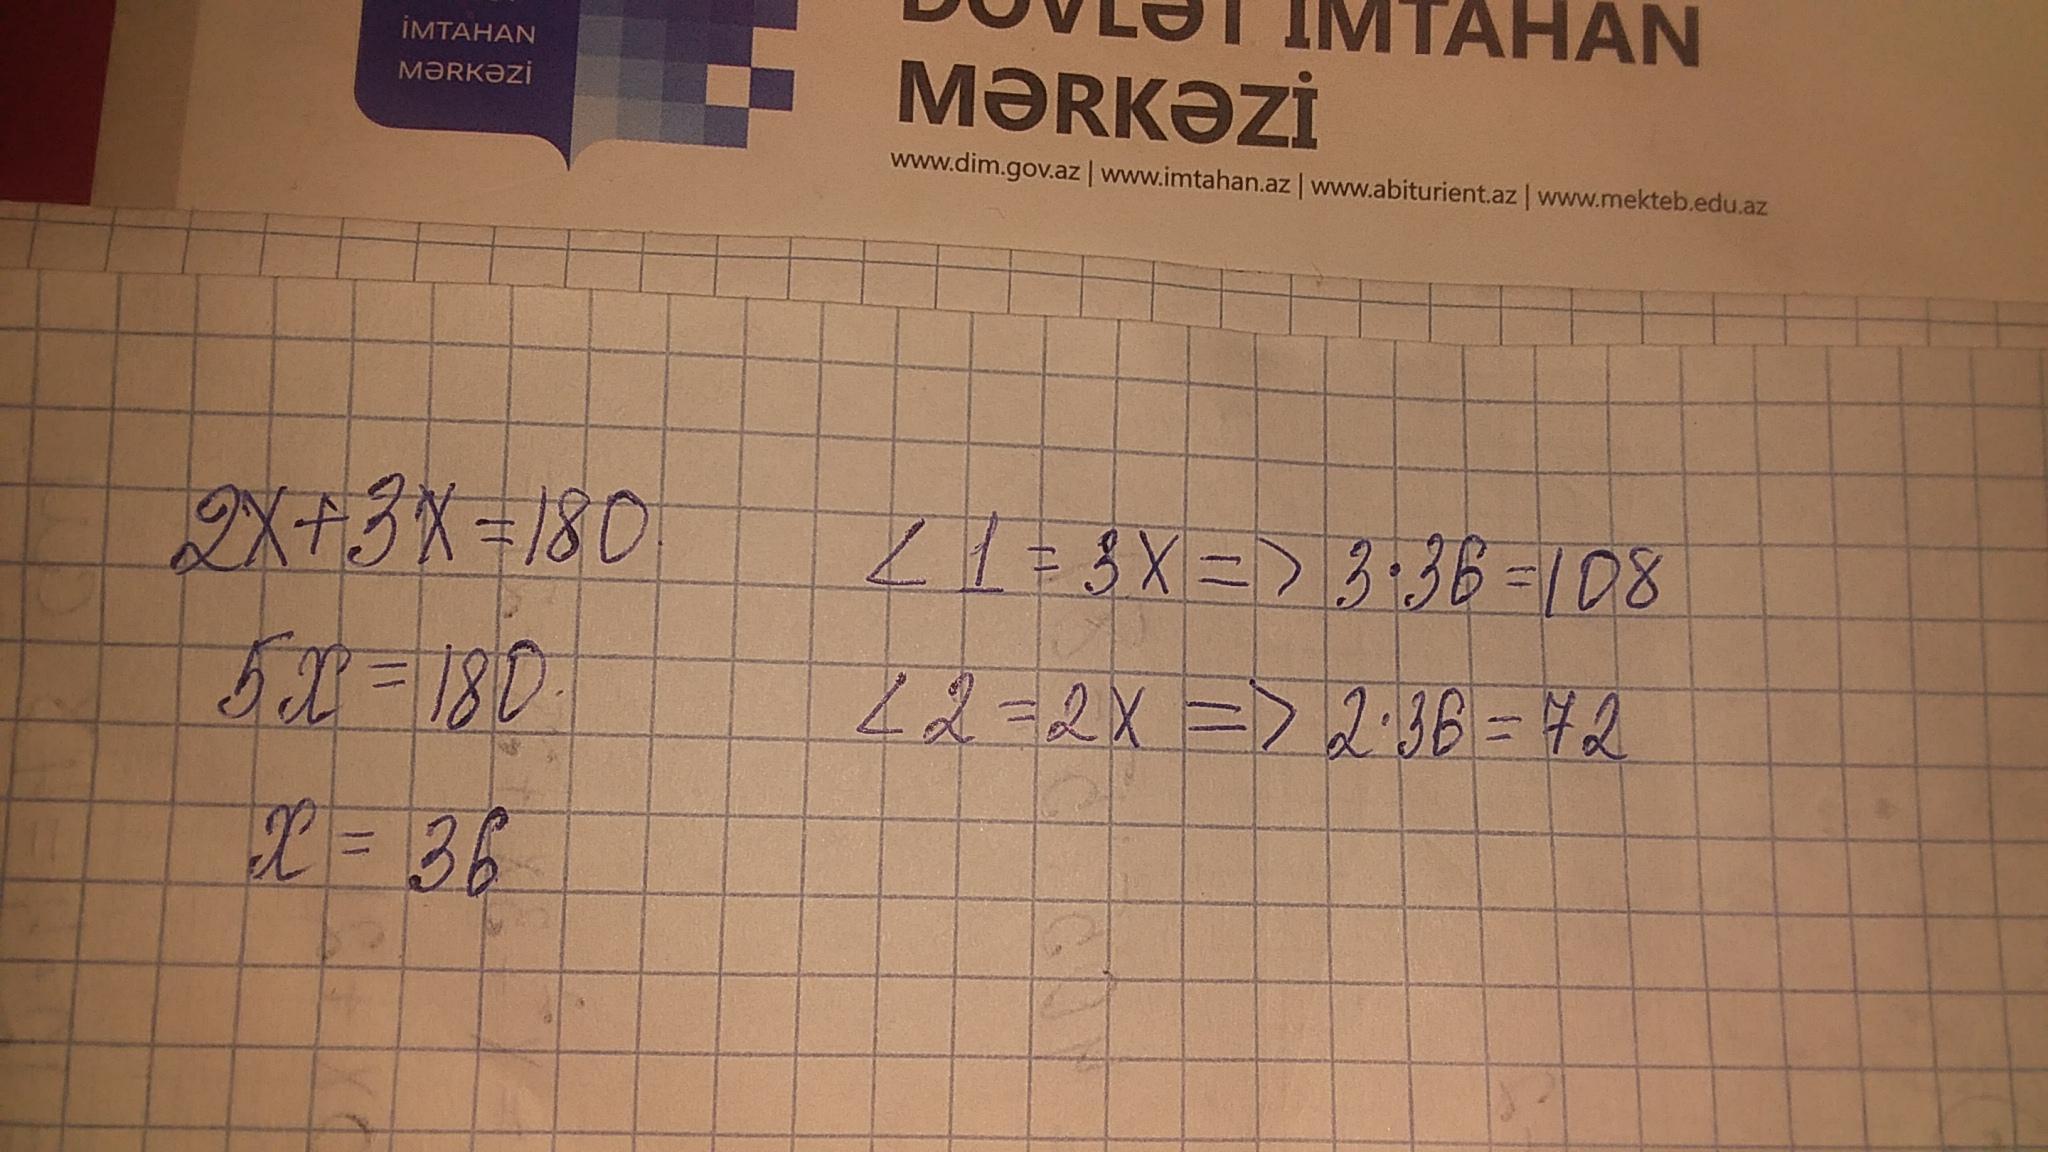 İMTAHAN
MƏRKƏZİ
DÖVLƏT İMTAHAN
MƏRKƏZİ
www.dim.gov.az | www.imtahan.az | www.abiturient.az | www.mekteb.edu.az
2x+3x=180.
5x=180.
x=36
∠1=3x=>3·36=108
∠2=2x=>2·36=72